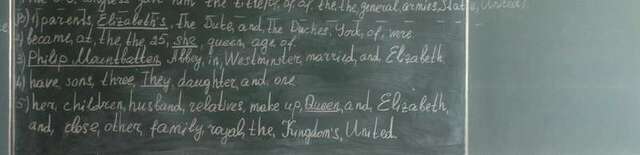 gave him the title, of, of the, the general, armies, States, United.
1) parents, Elizabeth's, The Duke, and, The Duches, York, of, were.
2) became, at, the, the 25, she, queen, age of
3) Philip Mountbatten, Abbey, in, Westminster, married, and, Elizabeth
4) have, sons, three, They, daughter, and, one
5) her, children, husband, relatives, make up, Queen, and, Elizabeth,
and, close, other, family, royal, the, Kingdom's, United